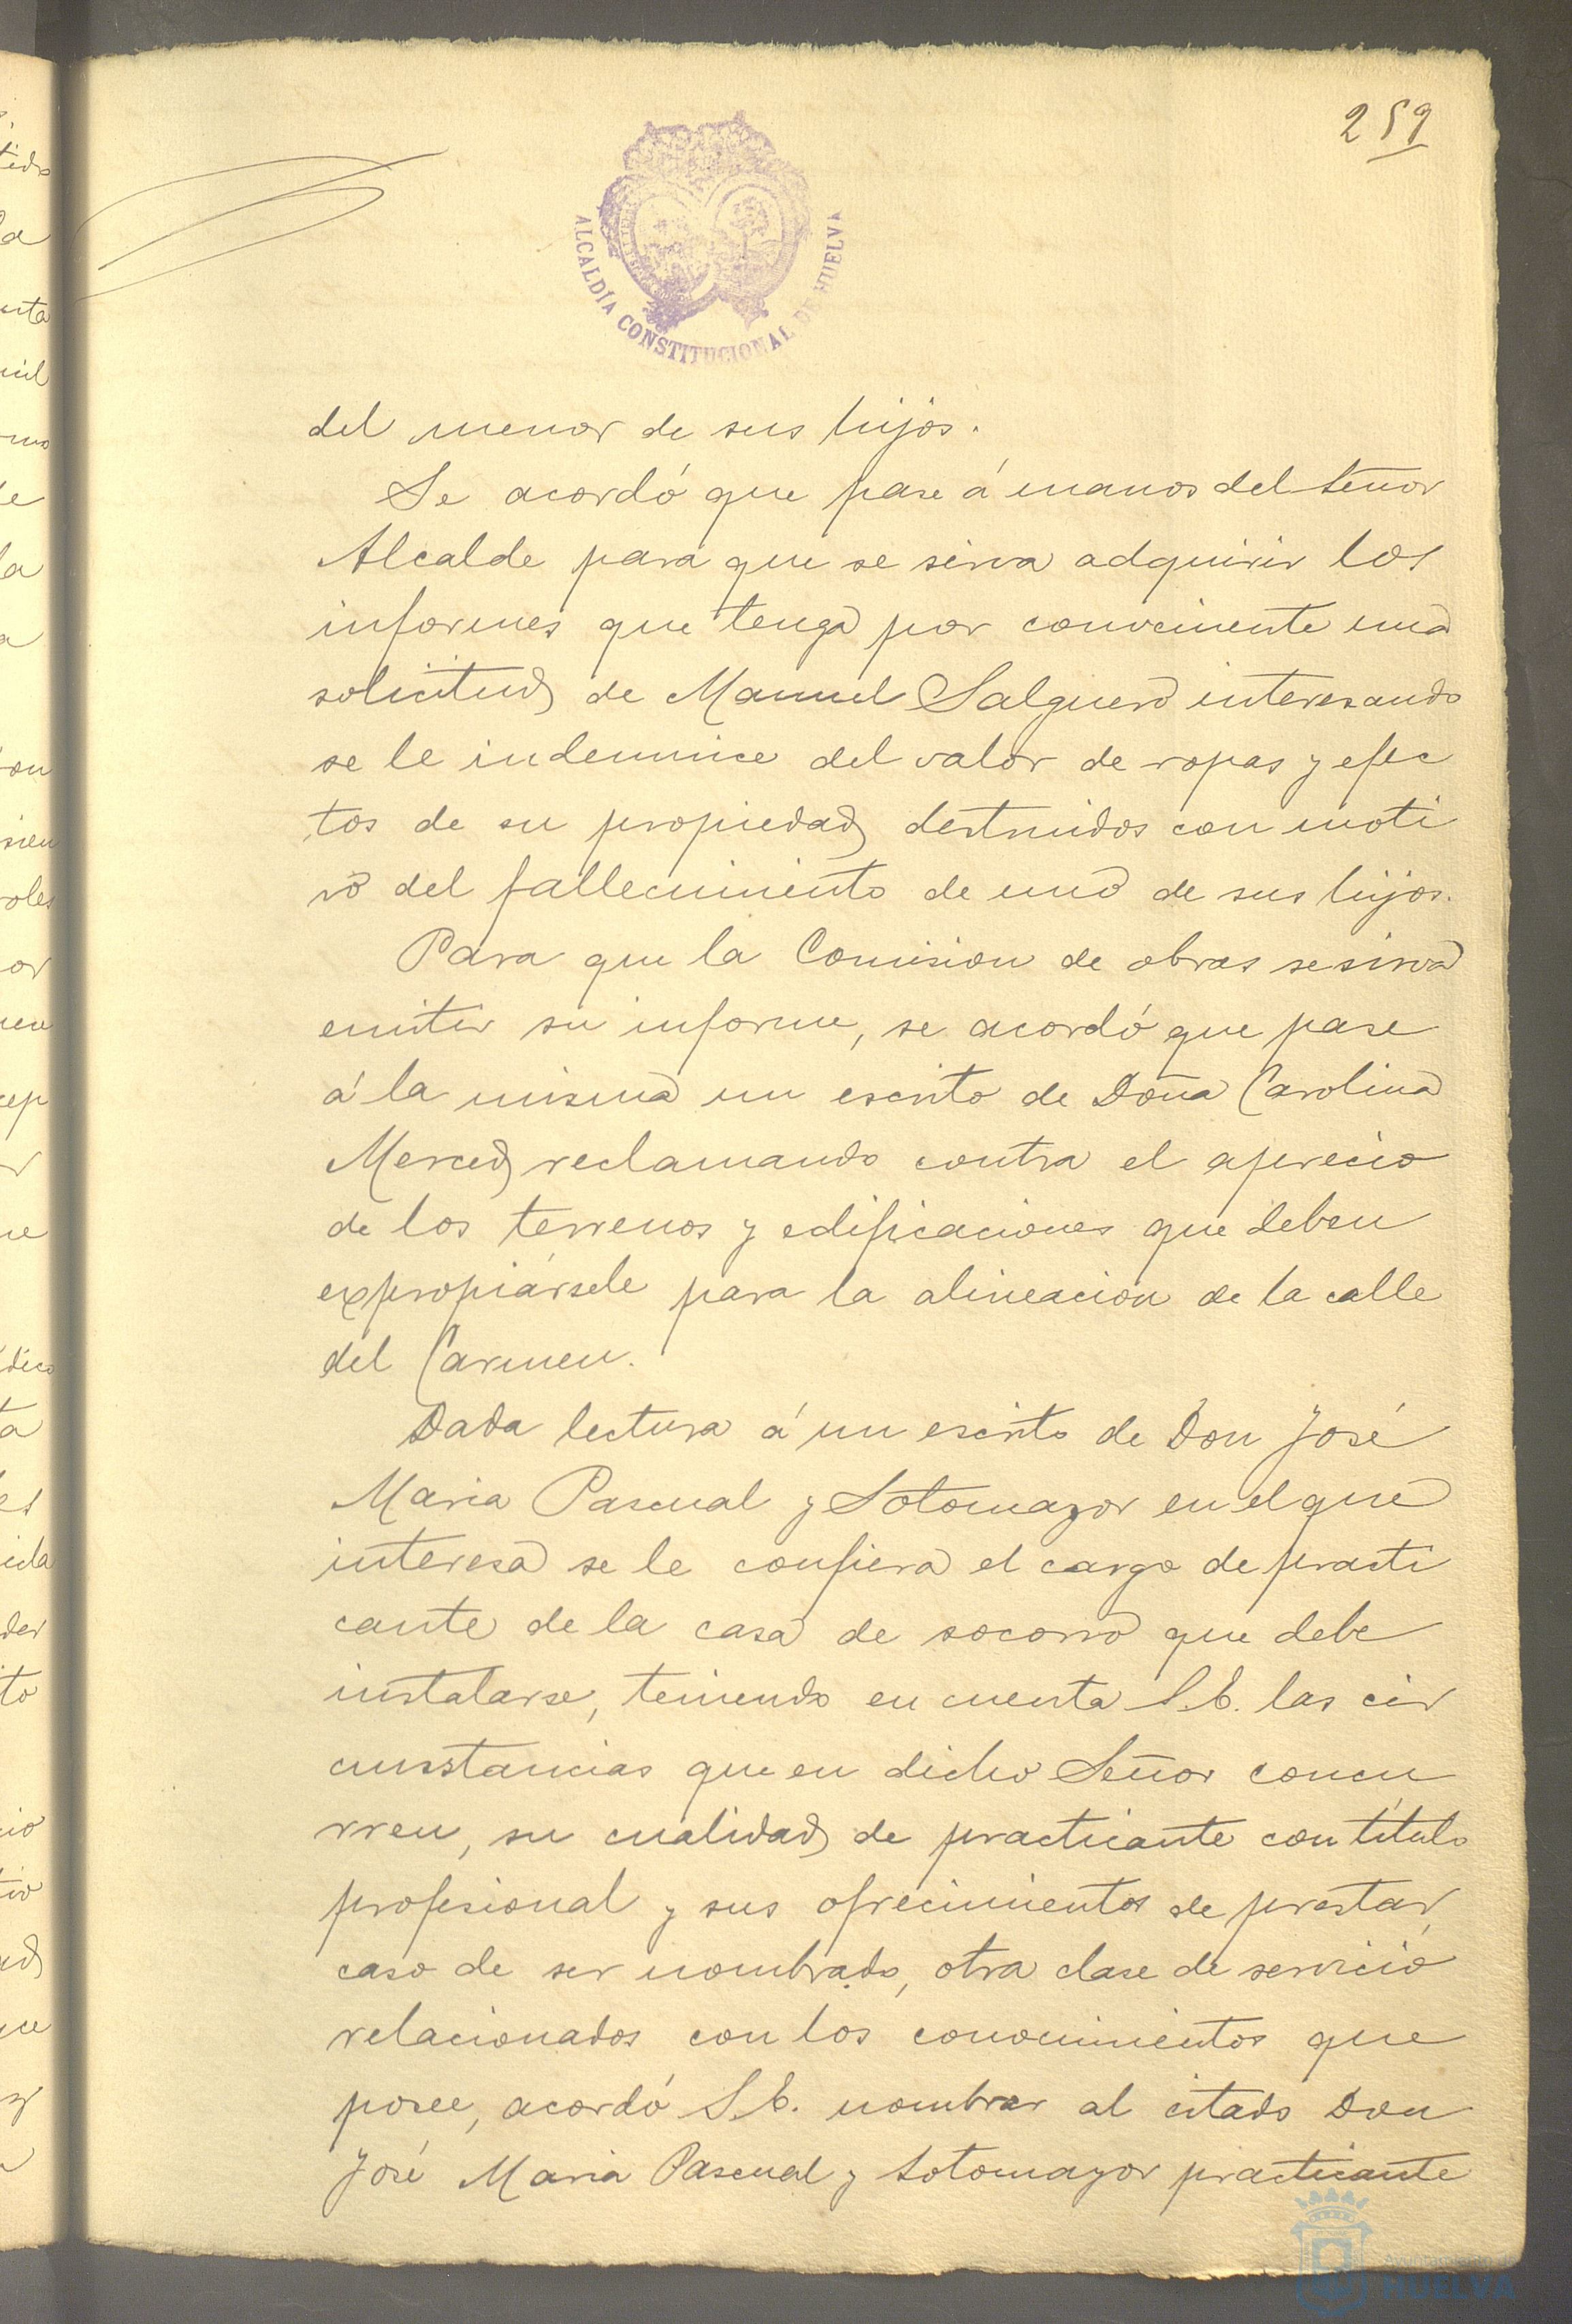 259
ALCALDÍA CONSTITUCIONAL DE HUELVA
del menor de sus hijos.
Se acordó que pase á manos del Señor
Alcalde para que se sirva adquirir los
informes que tenga por conveniente una
solicitud de Manuel Salguero interesando
se le indemnice del valor de ropas y efec
tos de su propiedad destruidos con moti
vo del fallecimiento de uno de sus hijos.
Para que la Comision de obras se sirva
emitir su informe, se acordó que pase
á la misma un escrito de Doña Carolina
Merced reclamando contra el aprecio
de los terrenos y edificaciones que deben
expropiársele para la alineación de la calle
del Carmen.
Dada lectura á un escrito de Don José
Maria Pascual y Sotomayor en el que
interesa se le confiera el cargo de practi
cante de la casa de socorro que debe
instalarse, teniendo en cuenta S.E. las cir
cunstancias que en dicho Señor concu
rren, su cualidad de practicante con título
profesional y sus ofrecimientos de prestar,
caso de ser nombrado, otra clase de servicio
relacionados con los conocimientos que
posee, acordó S.E. nombrar al citado Don
José Maria Pascual y Sotomayor practicante
Ayuntamiento de
HUELVA